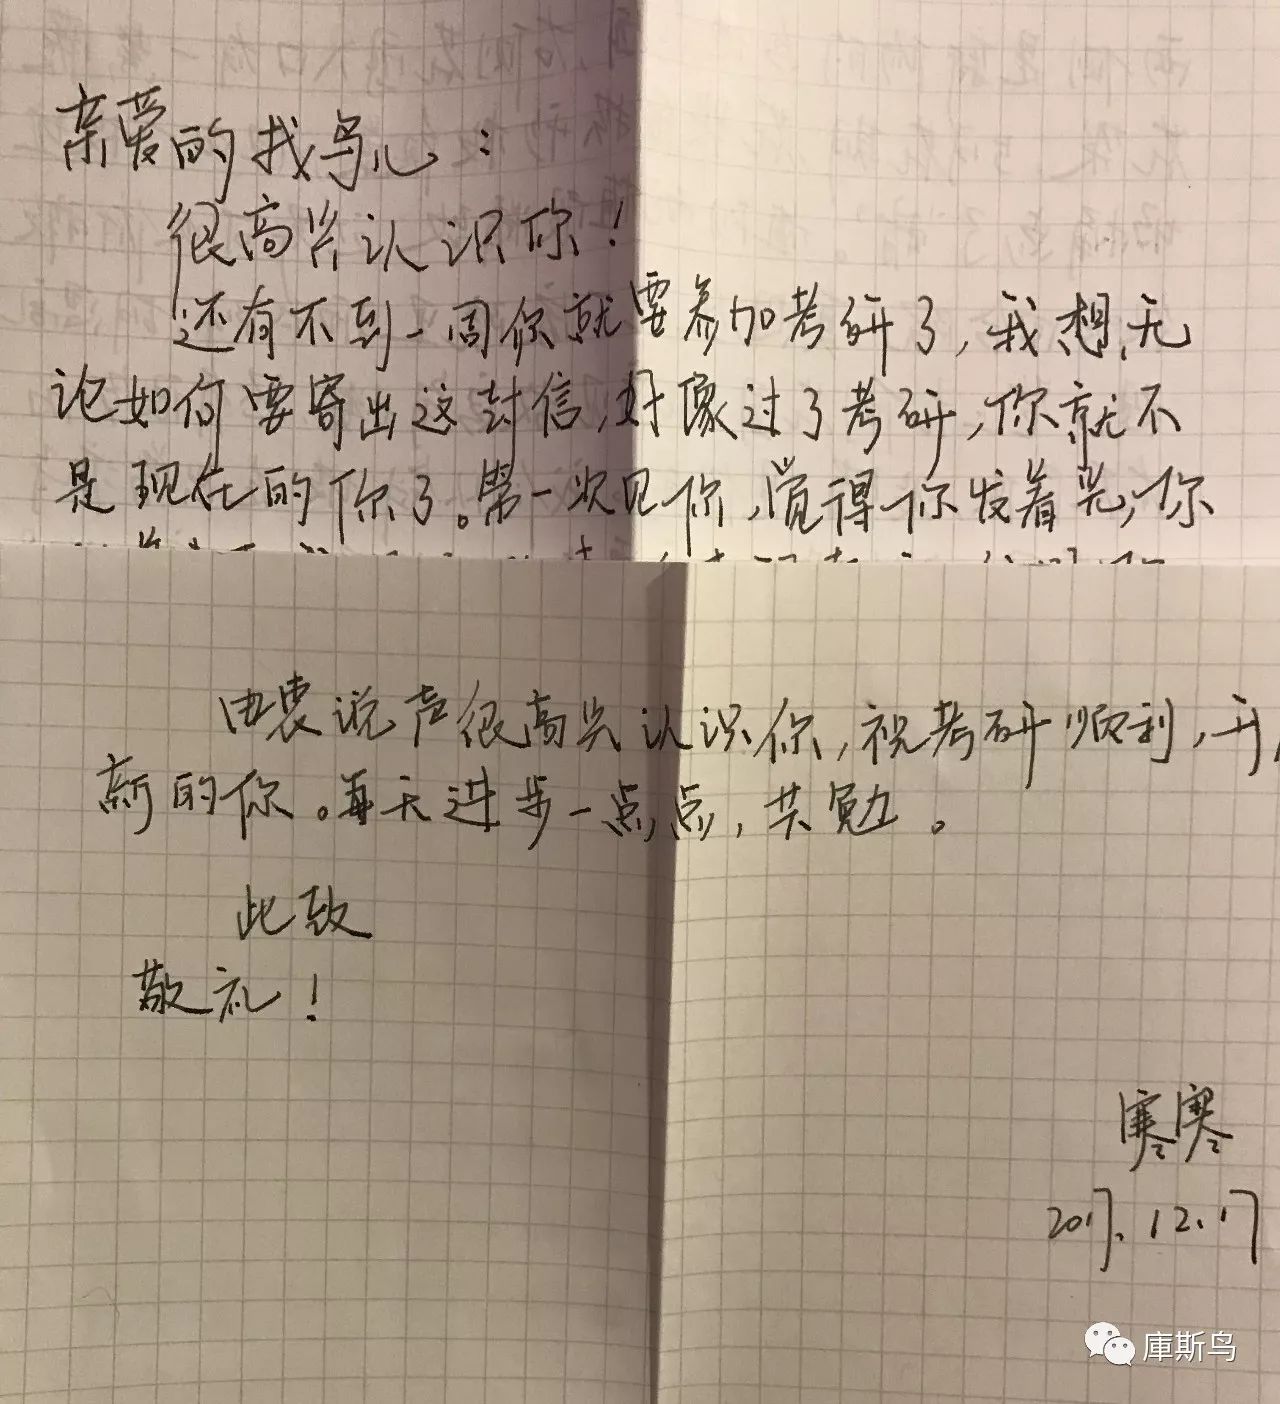 亲爱的找鸟儿：
很高兴认识你！
还有不到一周你就要参加考研了，我想，无
论如何要寄出这封信，好像过了考研，你就不
是现在的你了。第一次见你，觉得你发着光，你
由衷说声很高兴认识你，祝考研顺利，
新的你。每天进步一点点，共勉。
此致
敬礼！
寒寒
2017.12.17
庫斯鸟